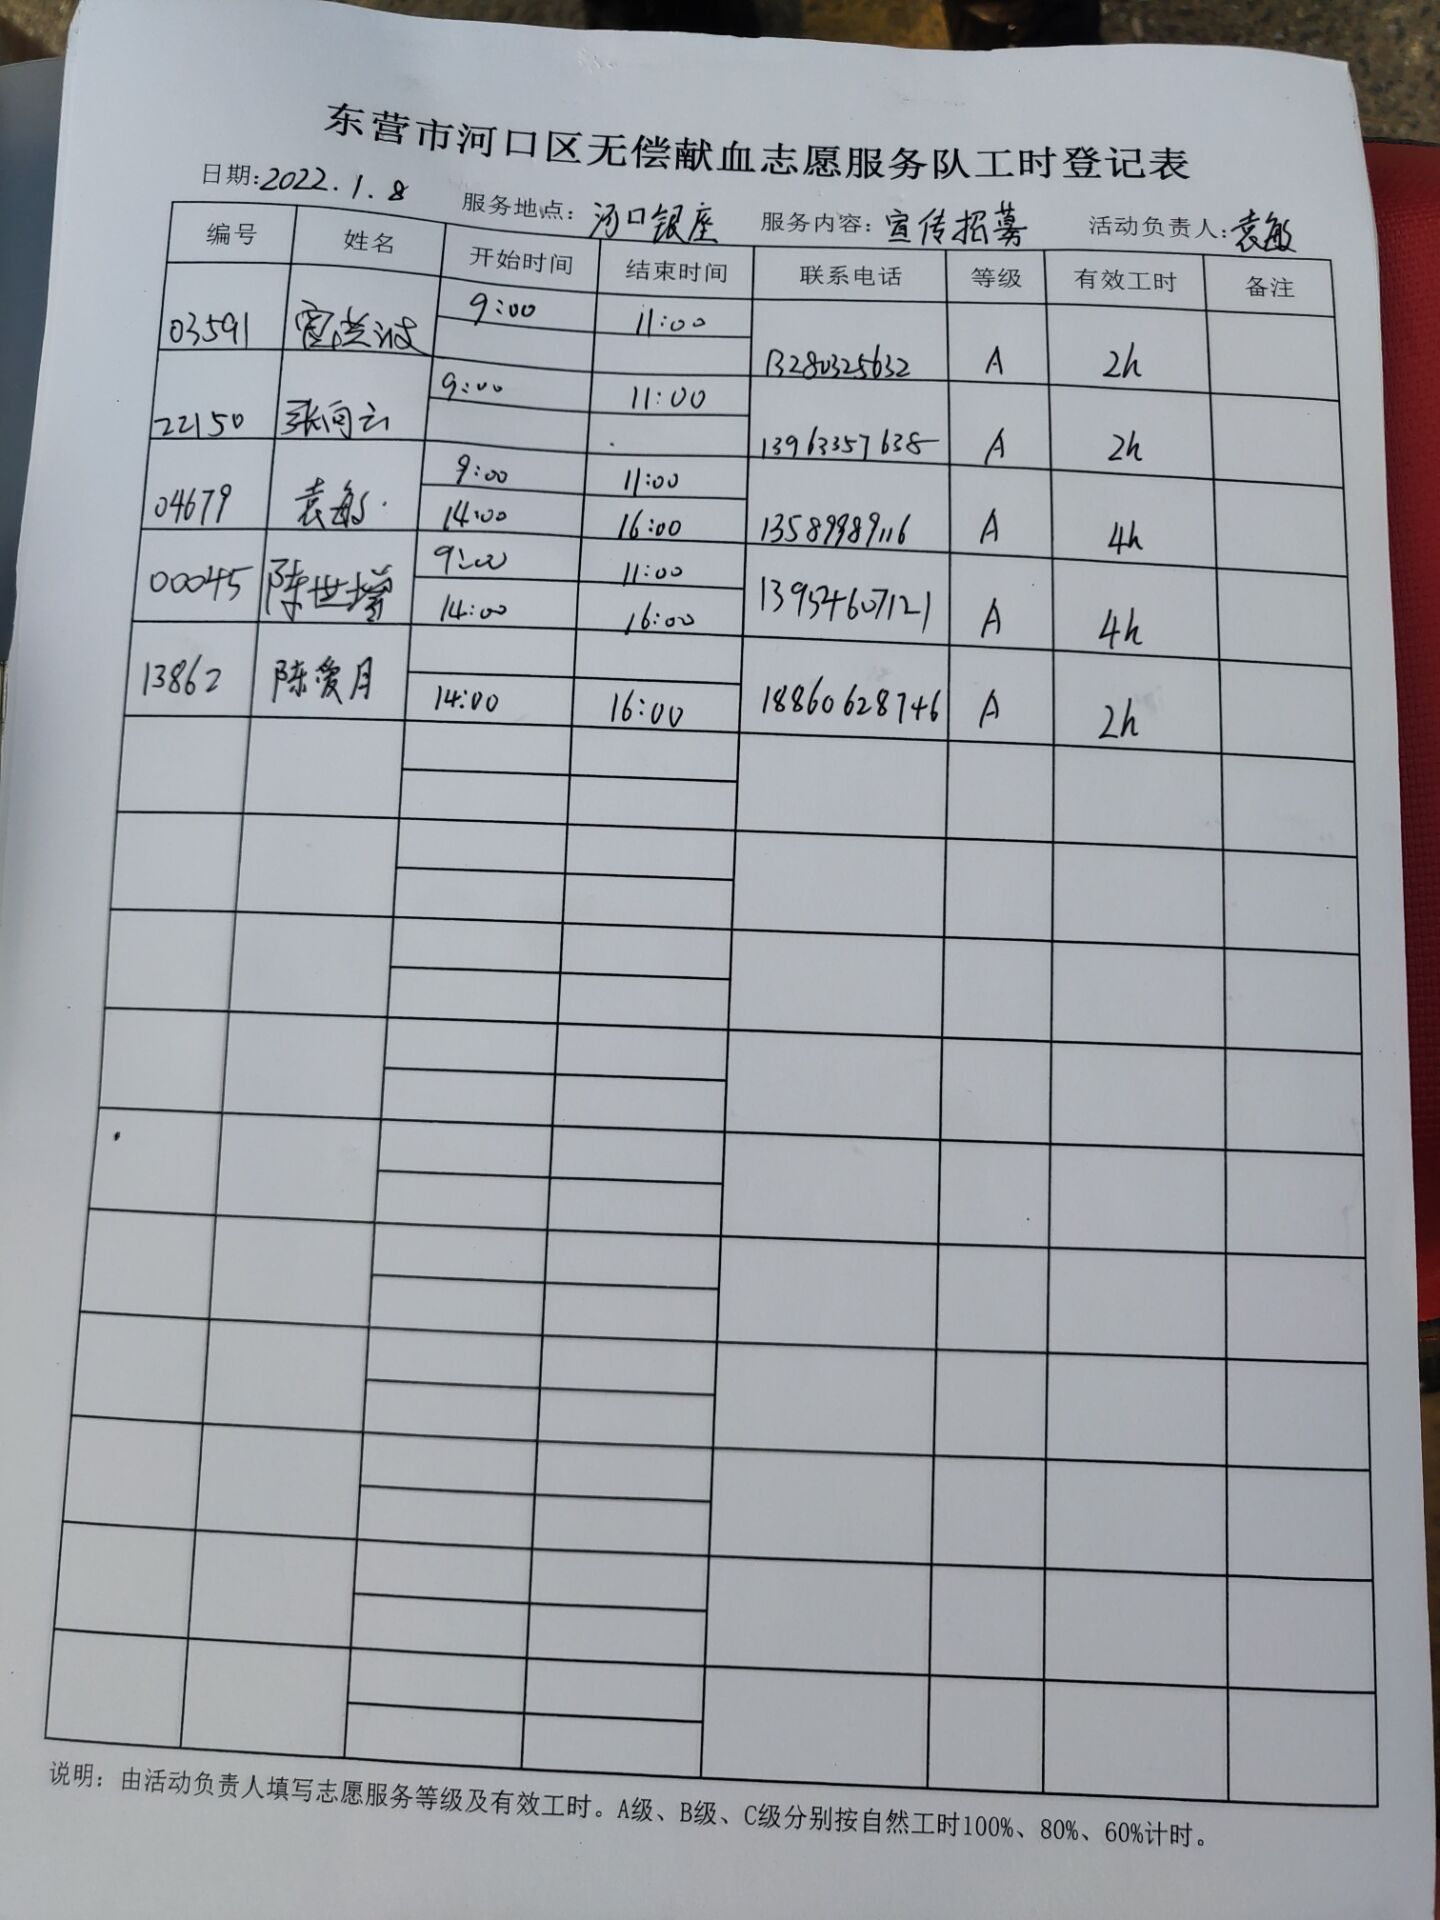 东营市河口区无偿献血志愿服务队工时登记表
日期:2022.1.8 服务地点: 河口银座 服务内容: 宣传招募 活动负责人: 袁敏
编号 姓名 开始时间 结束时间 联系电话 等级 有效工时 备注
03591 9:00 11:00 13280325632 A 2h
22150 张向云 9:00 11:00 13963357638 A 2h
04679 袁敏 9:00 11:00 13589989116 A 4h
14:00 16:00
00045 陈世增 9:00 11:00 13954607121 A 4h
14:00 16:00
13862 陈爱月 14:00 16:00 18860628746 A 2h
说明: 由活动负责人填写志愿服务等级及有效工时。A级、B级、C级分别按自然工时100%、80%、60%计时。